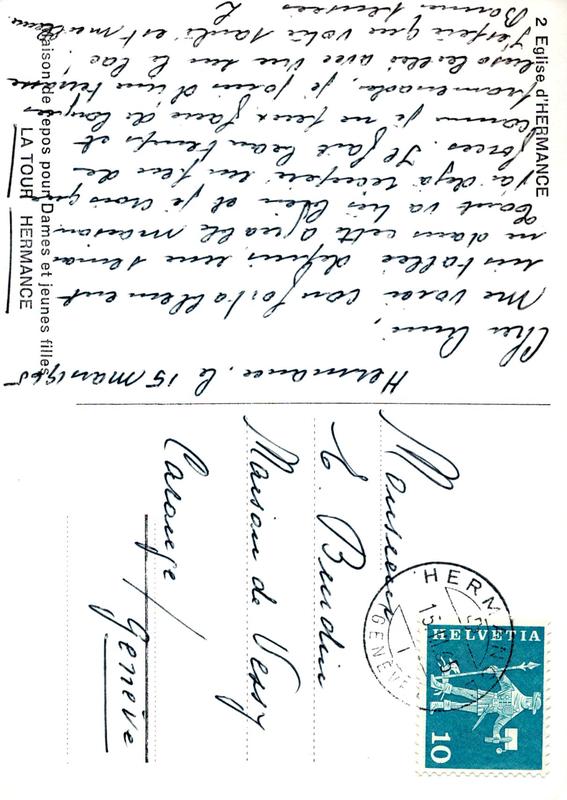 2 Eglise d'HERMANCE
Hermance, le 15 mars 1965
Cher Ami,
Me voici confortablement
installée depuis une semai-
ne dans cette agréable maison.
Tout va très bien et je crois que
j'ai déjà récupéré un peu de
forces. Il fait beau temps et
comme je ne peux faire de longues
promenades, je jouis d'une terrasse
ensoleillée avec vue sur le lac!
J'espère que votre santé est meilleure
Bonnes pensées
Maison de repos pour Dames et jeunes filles
LA TOUR HERMANCE
Monsieur
E. Burdin
Maison de Vessy
Carouge / Genève
HERMANCE
15
65
GENÈVE
HELVETIA
10